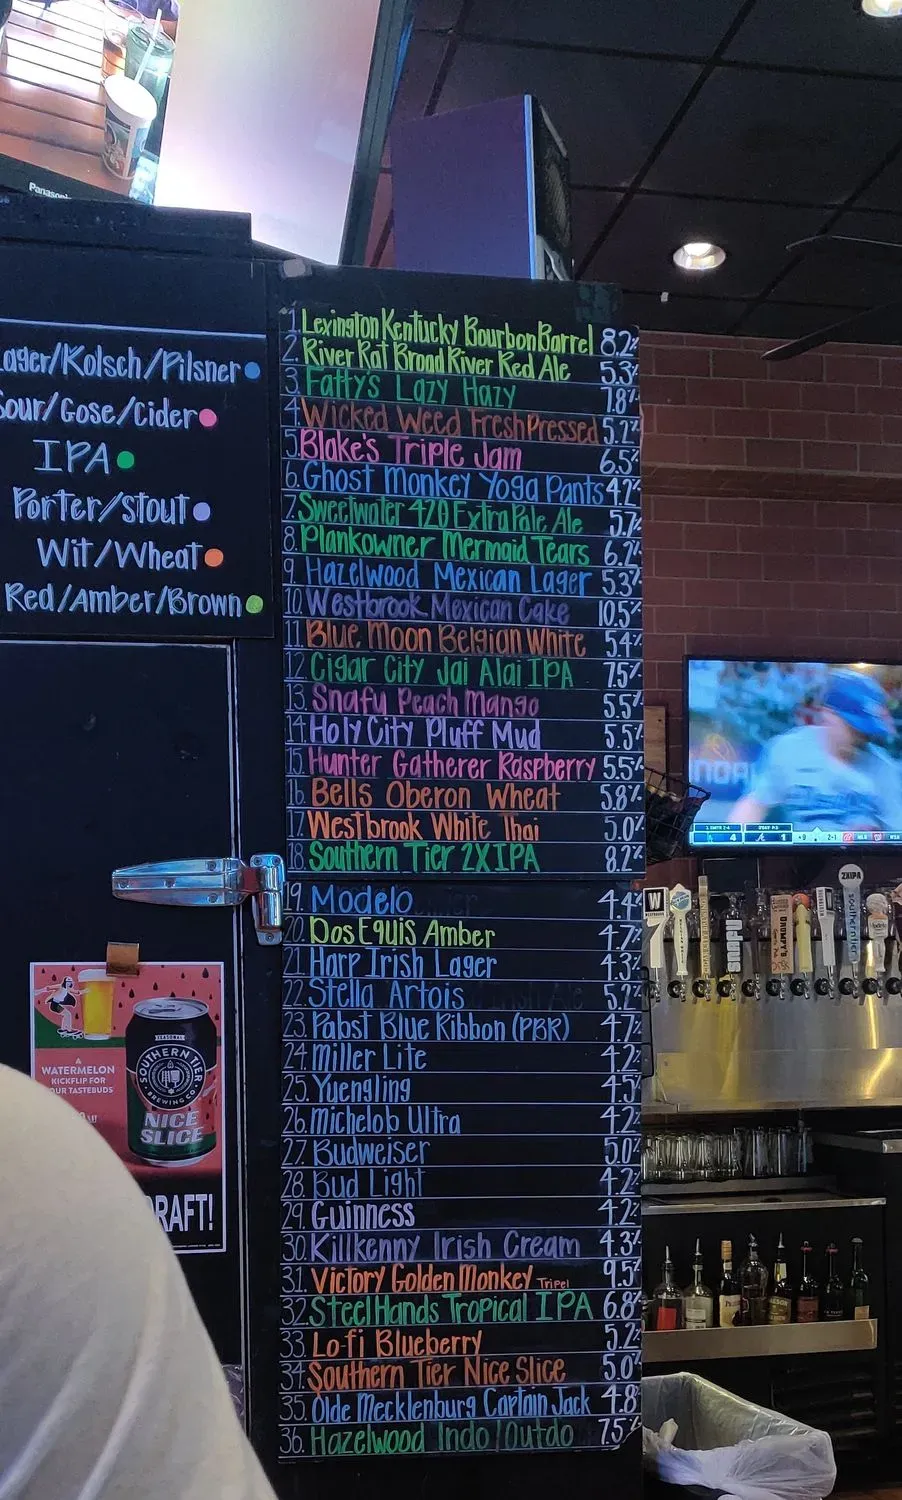 Panasonic
ager/Kolsch/Pilsner
Sour/Gose/Cider
IPA
Porter/Stout
Wit/Wheat
Red/Amber/Brown
1. Lexington Kentucky Bourbon Barrel 8.2%
2. River Rat Broad River Red Ale 5.3%
3. Fatty's Lazy Hazy 7.8%
4. Wicked Weed Fresh Pressed 5.2%
5. Blake's Triple Jam 6.5%
6. Ghost Monkey Yoga Pants 4.2%
7. Sweetwater 420 Extra Pale Ale 5.7%
8. Plankowner Mermaid Tears 6.2%
9. Hazelwood Mexican Lager 5.3%
10. Westbrook Mexican Cake 10.5%
11. Blue Moon Belgian White 5.4%
12. Cigar City Jai Alai IPA 7.5%
13. Snafu Peach Mango 5.5%
14. Holy City Pluff Mud 5.5%
15. Hunter Gatherer Raspberry 5.5%
16. Bells Oberon Wheat 5.8%
17. Westbrook White Thai 5.0%
18. Southern Tier 2XIPA 8.2%
19. Modelo 4.4%
20. Dos Equis Amber 4.7%
21. Harp Irish Lager 4.3%
22. Stella Artois 5.2%
23. Pabst Blue Ribbon (PBR) 4.7%
24. Miller Lite 4.2%
25. Yuengling 4.5%
26. Michelob Ultra 4.2%
27. Budweiser 5.0%
28. Bud Light 4.2%
29. Guinness 4.2%
30. Killkenny Irish Cream 4.3%
31. Victory Golden Monkey Tripel 9.5%
32. Steel Hands Tropical IPA 6.8%
33. Lo-fi Blueberry 5.2%
34. Southern Tier Nice Slice 5.0%
35. Olde Mecklenburg Captain Jack 4.8%
36. Hazelwood Indo/Outdo 7.5%
A
WATERMELON
KICKFLIP FOR
OUR TASTEBUDS
SOUTHERN TIER
BREWING CO
NICE
SLICE
RAFT!
4
1
2-1
SNAFU
2XIPA
southerntier